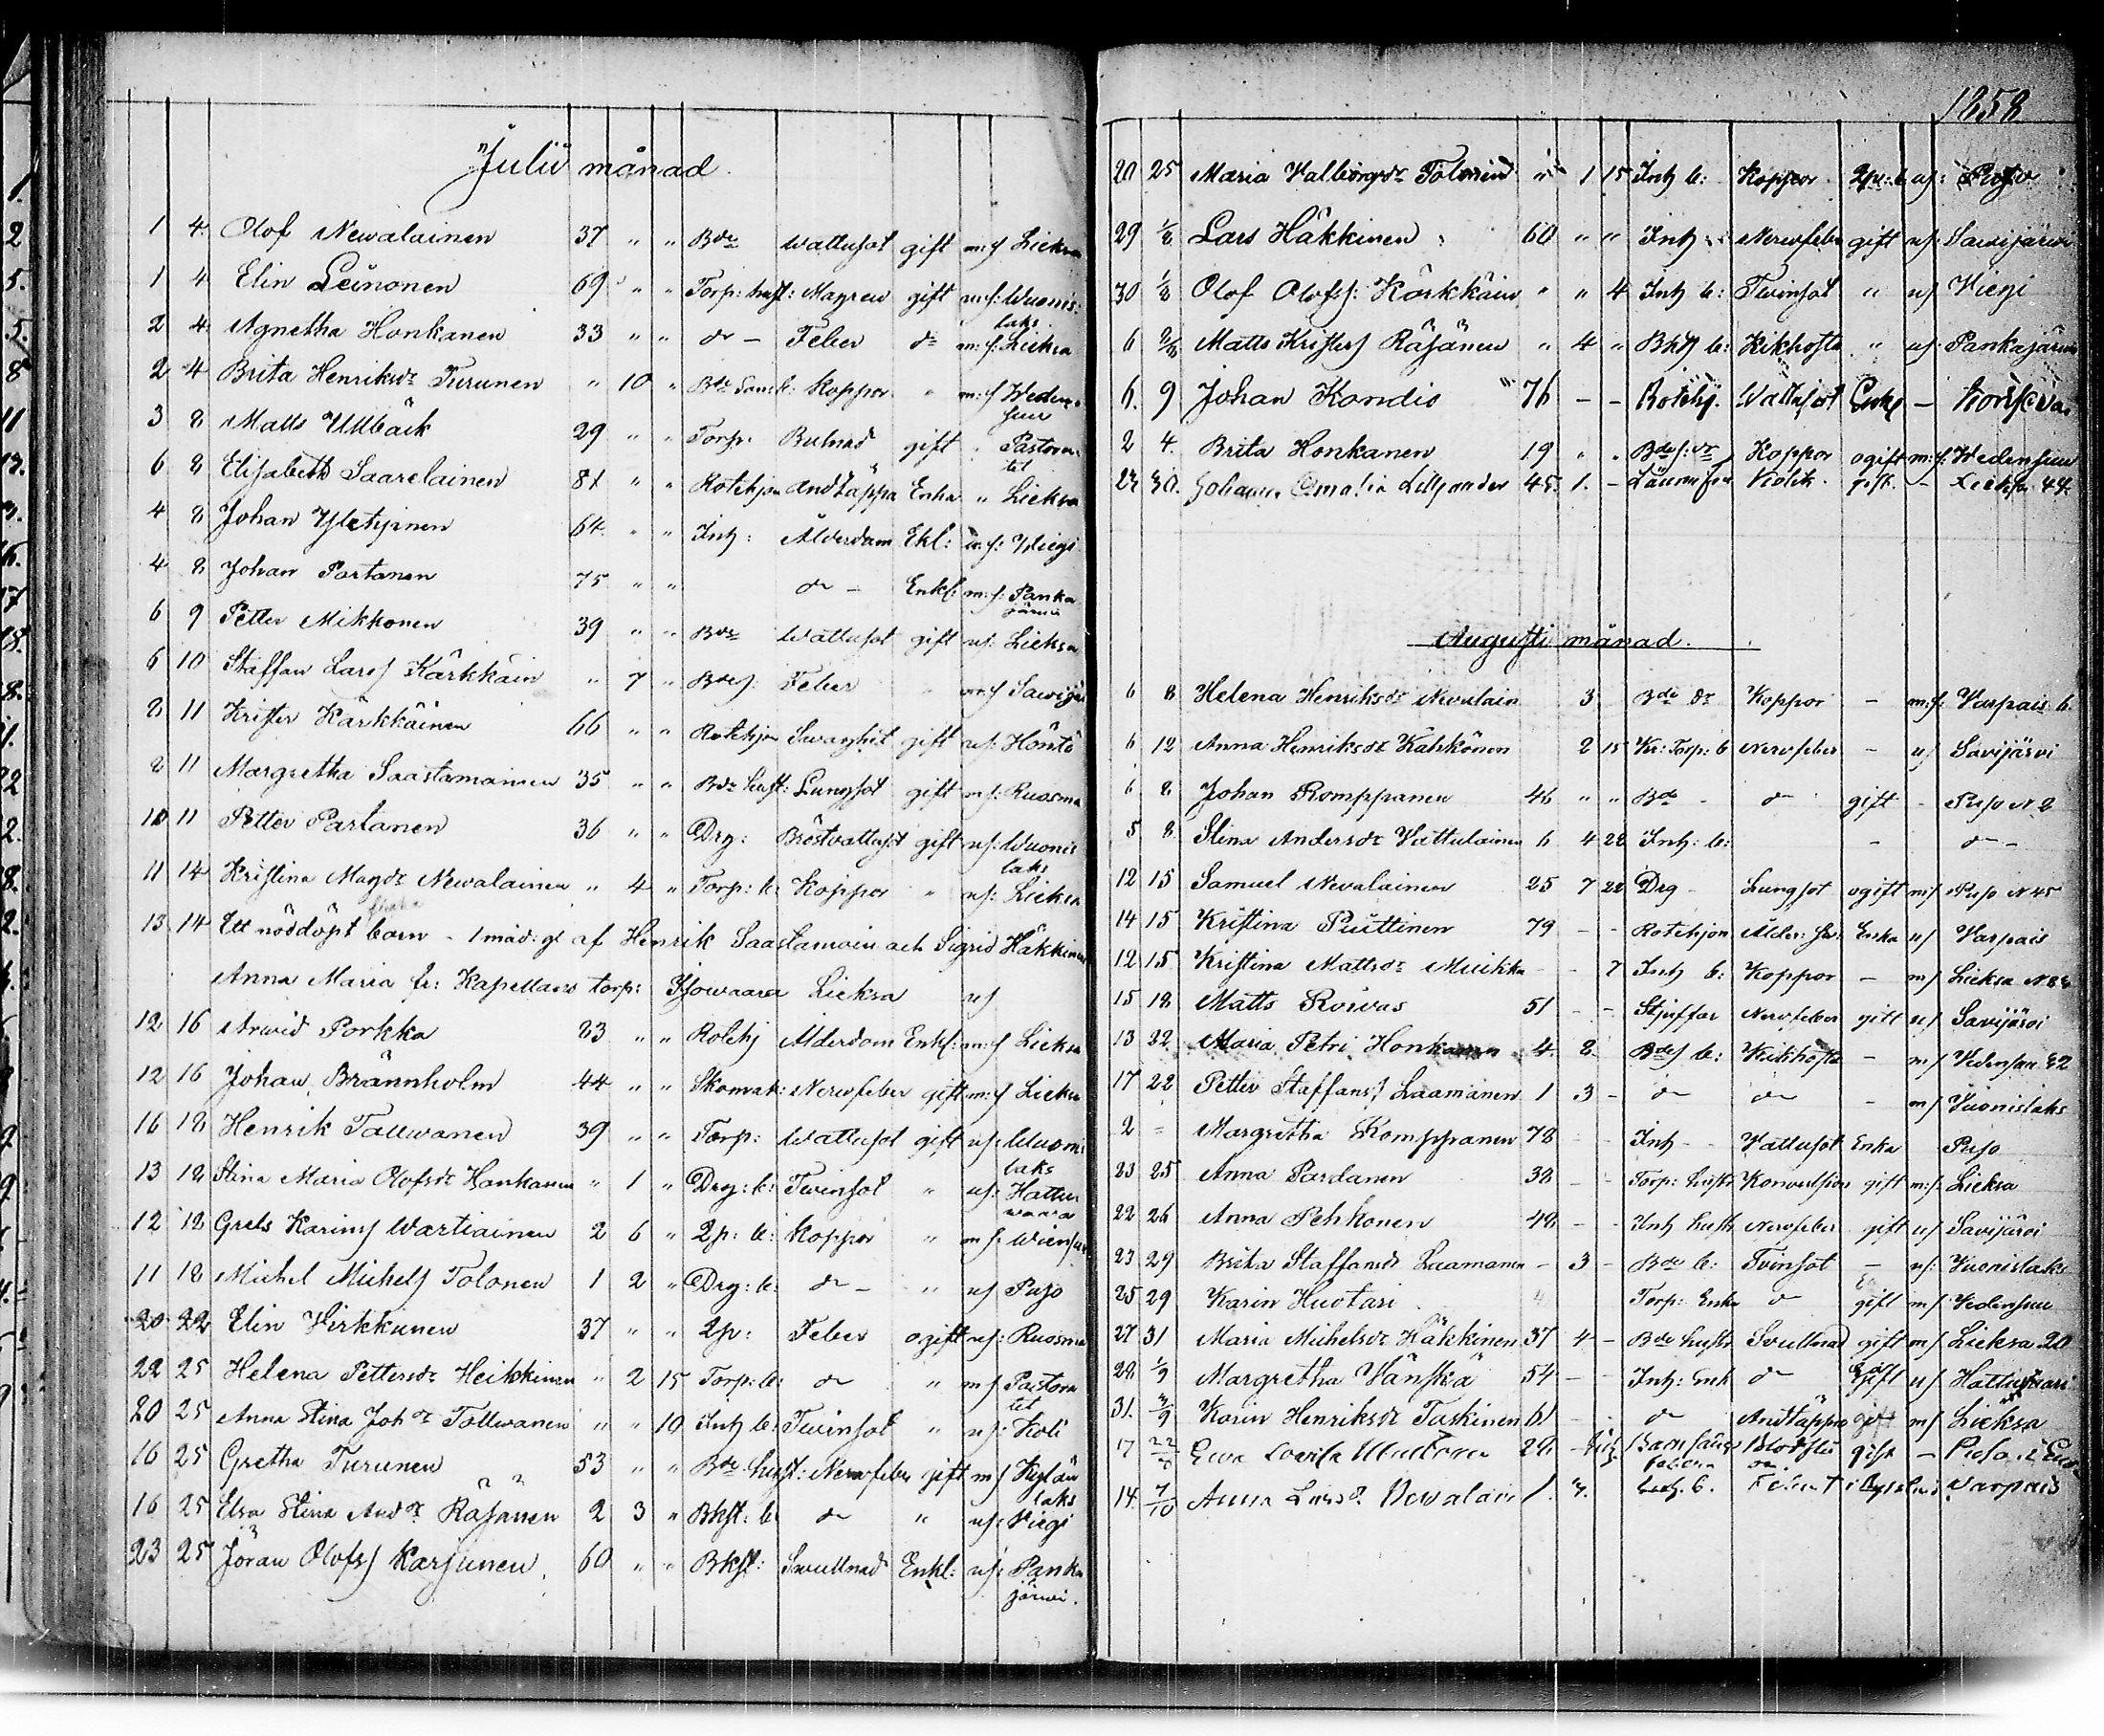 Julii månad.
1 4. Olof Newalainen 37 " " Bde Wattusot gift m:f Lieksa
1 4 Elin Leinonen 69 " " Torp: hust: Magrew gift uf: Wuonis:
laks.
2 4 Agnetha Honkanen 33 " " do - Feber do m:f: Lieksa
2 4 Brita Henriksdr Turunen " 10 " Bde koppor " m:f Weden
suu
3 8 Matts Ullbäck 29 " " Torp: gift " Pastora
tet
6 8 Elisabeth Saarelainen 81 " " Rotehjon Andtäppa Enka " Lieksa
4 8 Johan 64 " " Inh: Ålderdom Ekl: Wiegi
4 8 Johan Partanen 75 " " do - Enkl: m:f: Panka
järwi
6 9 Petter Mikkonen 39 " " Bde Wattusot gift uf: Lieksa
6 10 Staffan Larsf Kärkkäin " 7 " Bdef: Feber " m:f Sawijär
8 11 Krister Kärkkäinen 66 " " Rotehjon Swaghet gift uf: Höntö
8 11 Margretha Saastamoinen 35 " " Bde hust: Lungsot gift uf: Ruosma
10 11 Petter Partanen 36 " " Drg: Bröstvattusot gift uf: Wuonis
laks
11 14 Kristina Magdr Newalainen " 4 " Torp: b: Koppor " uf: Lieksa
13 14 Ett nöddöpt barn - 1 mån: gl af Henrik Saastamoin och Sigrid Häkkinen
Anna Maria fr: Kapellans torp: Lieksa uf
12 16 Arwid Porkka 83 " " Rotehj Ålderdom Enkl: m:f Lieksa
12 16 Johan Brännholm 44 " " Skomak: Nerwfeber gift m:f Lieksa
16 18 Henrik Tallwanen 39 " " Torp: Wattusot gift uf: Wuonis
laks
13 18 Stina Maria Olofsdr Honkanen " 1 " Drg: b: Twinsot " uf: Hattu
waara
12 18 Grels Karinsf Wartiainen 2 6 " 2p: b: koppor " m:f: Wiensuu
11 18 Michel Michelsf Tolonen 1 2 " Drg: b: do - " uf Puso
20 22 Elin Virkkunen 37 " " 2p: Feber ogift uf: Ruosma
22 25 Helena Pettersdr Heikkinen " 2 15 Torp: b: do " m:f Pastora
tet
20 25 Anna Stina Joh dr Tallwanen " " 10 Inh b: Twinsot " uf: Koli
16 25 Gretha Turunen 53 " " Bde hust: Nerwfeber gift m:f Kylän
laks
16 25 Elsa Stina And dr Räsänen 2 3 " Bkst: b: do " uf: Viegi
23 25 Jöran Olofsf Karjunen 60 " " Bkst: Swullnad Enkl: uf: Panka
järwi.
1858
20 25 Maria Valborgsdr Tolonen " 1 15 Inh b: Koppor uf: Puso
29 1/8 Lars Häkkinen 60 " " Inh Nerwfeber gift uf: Sawijärwi
30 1/8 Olof Olofsf: Kärkkäin " " 4 Inh b: Twinsot " uf Viegi
6 Matts Kristersf Räsänen " 4 " Bkst b: Kikhosta " uf: Pankajärwi
6. 9 Johan Kondio 76 - - Rotehj. Wattusot Enkl -
2 4. Brita Honkanen 19 " " Bdes: dr Koppor ogift m:f: Wedensuu
23 30. Johanna Amalia Lilljander 45. 1. - Kolik. gift. - Lieksa 44.
Augusti månad.
6 8 Helena Henriksdr Nevalain 3 Bde dr Koppor - m:f: Varpais 6.
6 12 Anna Henriksdr Kähkönen 2 15 Kr: Torp: b Nervfeber - uf Savijärvi
6 8 Johan Romppanen 46 " " Bde - do gift - Puso N 8
5 8 Stina Andersdr Vattulainen 6 4 22 Inh: b: - do -
12 15 Samuel Nevalainen 25 7 22 Drg - Lungsot ogift m:f Puso N 45
14 15 Kristina Piittinen 79 - - Rotehjon Ålder: sv: Enka uf Varpais
12 15 Kristina Mattsdr Muikku - - 7 Inh b: Koppor - m:f Lieksa
15 18 Matts Roivas 51 - - Nervfeber gift uf Savijärvi
13 22 Maria Petri Honkanen 4 8 Bdef b: Kikhosta - m:f Vedensuu 32
17 22 Petter Staffansf Laamanen 1 3 - do do - m:f Vuonislaks
2 = Margretha Romppanen 78 - - Inh - Vattusot Enka Puso
23 25 Anna Pardanen 38 - - Torp: hustr Konvulsion gift m:f: Lieksa
22 26 Anna Pehkonen 48 - - Inh hustr Nervfeber gift uf Savijärvi
23 29 Brita Staffansdr Laamanen - 3 - Bde b: Tvinsot - uf: Vuonislaks
25 29 Karin Huotari 4 Torp: Enka do gift m:f Vedensuu
27 31 Maria Michelsdr Häkkinen 37 4 - Bde hustr Svullnad gift m:f Lieksa 20
28 1/9 Margretha Vänskä 54 - - Inh: Enk do gift uf Hattuvaari
31. Karin Henriksdr Taskinen 61 - - do Andtäppa m:f Lieksa
17 Ewa Lovisa 28 gift - Puso
14 7/10 Anna Larsd. Newalain 1. Inh. b. Varpais